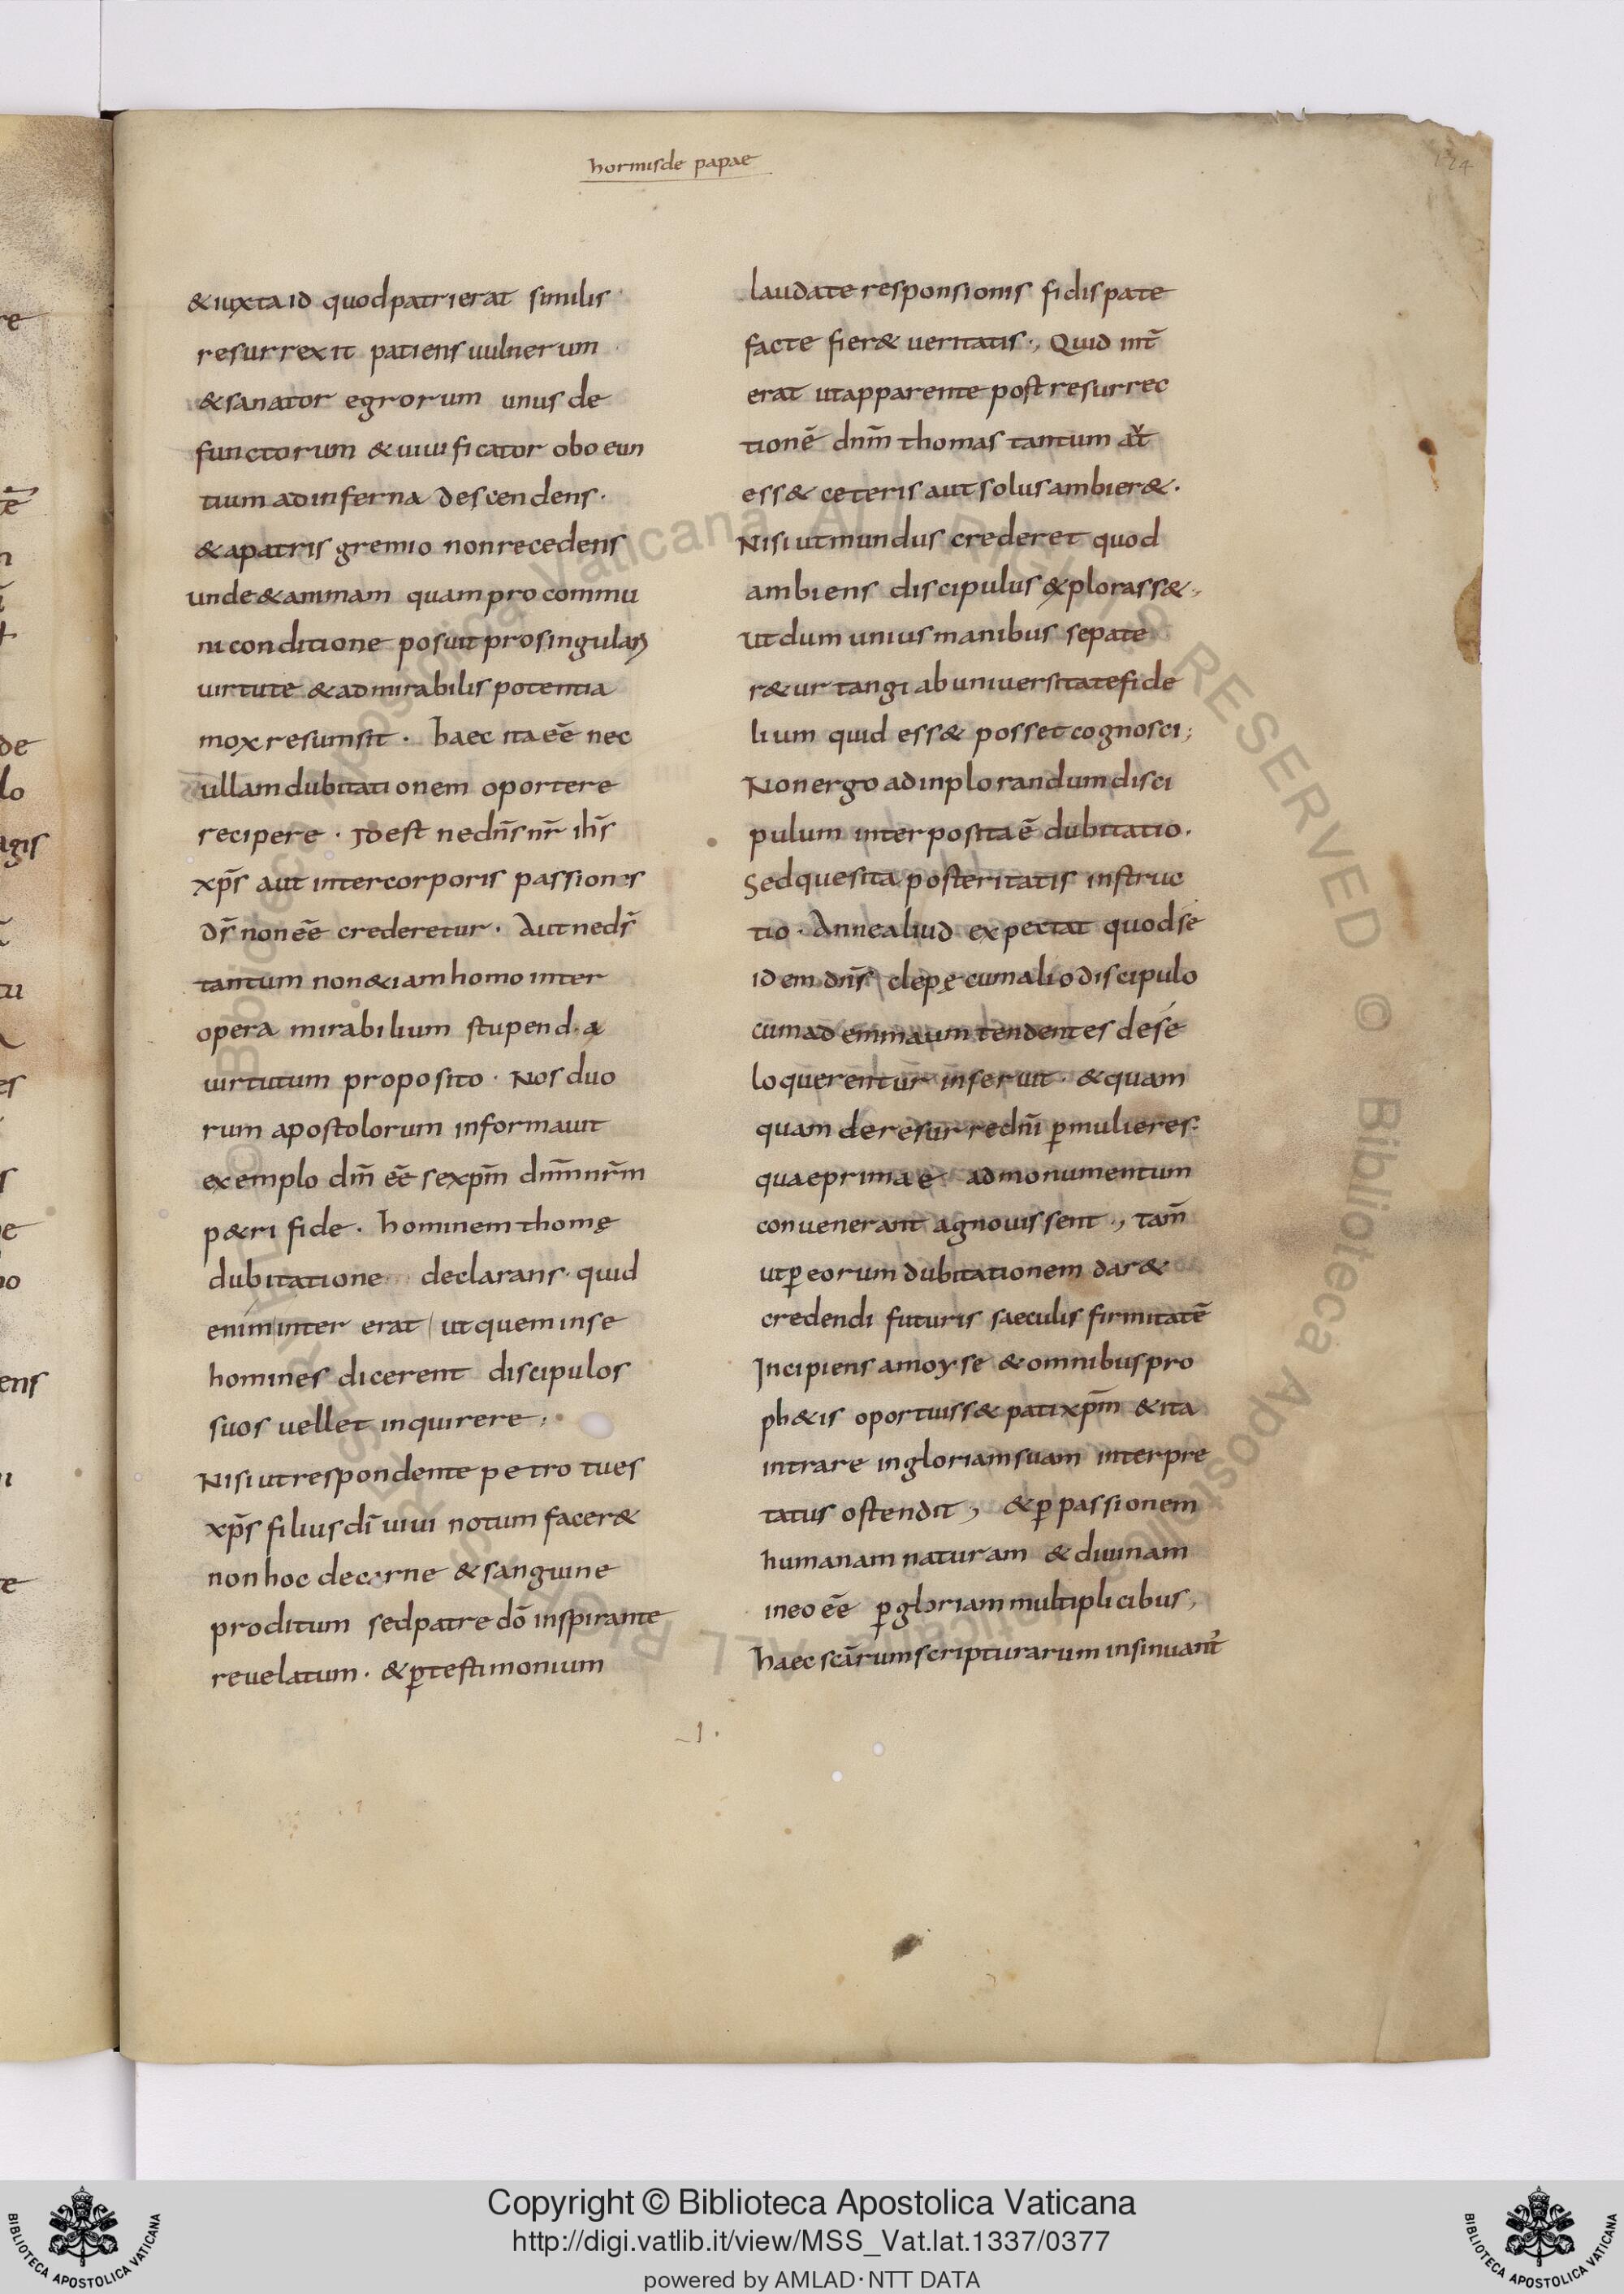 hormisde papae
& iuxta id quod patri erat similis
resurrexit patiens uulnerum
& sanator egrorum unus de
functorum & uiuificator oboeun
tium ad inferna descendens·
& a patris gremio non recedens
unde & animam quam pro commu
ni conditione posuit pro singulari
uirtute & admirabilis potentia
mox resumsit· haec ita eē nec
ullam dubitationem oportere
recipere· Id est ne dn̄s nr̄ ih̄s
xp̄s aut inter corporis passiones
dr̄ non eē crederetur· Aut ne dr̄
tantum non &iam homo inter
opera mirabilium stupenda
uirtutum proposito· Nos duo
rum apostolorum informauit
exemplo dm̄ eē se xpm̄ dnm̄ nr̄m
p&ri fide· hominem thomę
dubitatione declarans· quid
enim inter erat ut quem in se
homines dicerent discipulos
suos uellet inquirere;
Nisi ut respondente petro tu es
xp̄s filius dī uiui notum facer&
non hoc de carne & sanguine
proditum sed patre dō inspirante
reuelatum· & p̱ testimonium
laudate responsionis fidis pate
facte fier& ueritatis·, Quid int̄
erat ut apparente post resurrec
tionē dnm̄ thomas tantum aut
ess& ceteris aut solus ambier&·
Nisi ut mundus crederet quod
ambiens discipulus &plorass&·,
Ut dum unius manibus se pate
r&ur tangi ab uniuersitate fide
lium quid ess& posset cognosci;
Non ergo ad inplorandum disci
pulum interposita ē dubitatio·
Sed quesita posteritatis instruc
tio· Anne aliud expectat quod se
idem dn̄s clepę cum alio discipulo
cum ad emmaum tendentes de se
loquerentur inseruit· & quam
quam de resurre dnī p̱ mulieres·
quae primae ad monumentum
conuenerant agnouissent·, tam̄
ut p̱ eorum dubitationem dar&
credendi futuris saeculis firmitatē
Incipiens a moyse & omnibus pro
ph&is oportuiss& pati xpm̄ & ita
intrare in gloriam suam interpre
tatus ostendit, & p̱ passionem
humanam naturam & diuinam
in eo eē p̱ gloriam multiplicibus,
haec scārum scripturarum insinuant᷑
Copyright © Biblioteca Apostolica Vaticana
http://digi.vatlib.it/view/MSS_Vat.lat.1337/0377
powered by AMLAD·NTT DATA